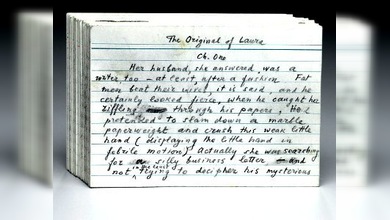 The Original of Laura
Ch. One
Her husband, she answered, was a
writer too — at least, after a fashion. Fat
men beat their wives, it is said, and he
certainly looked fierce, when he caught her
riffling through his papers. He
pretended to slam down a marble
paperweight and crush this weak little
hand (displaying the little hand in
febrile motion) Actually she was searching
for a silly business letter — and
not in the least trying to decipher his mysterious